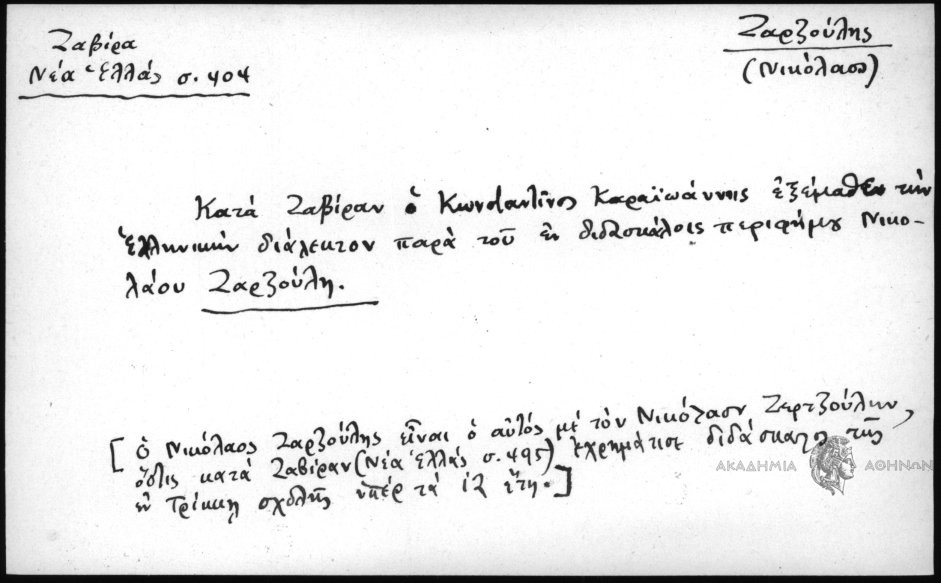 Ζαβίρα
Νέα Ἑλλάς σ. 404
Ζαρζούλης
(Νικόλαος)
Κατά Ζαβίραν ὁ Κωνσταντῖνος Καραϊωάννης ἐξέμαθεν τήν
Ἑλληνικήν διάλεκτον παρά τοῦ ἐν διδασκάλοις περιφήμου Νικο-
λάου Ζαρζούλη.
[ὁ Νικόλαος Ζαρζούλης εἶναι ὁ αὐτός μέ τόν Νικόλαον Ζερτζούλην,
ὅστις κατά Ζαβίραν (Νέα Ἑλλάς σ. 495) ἐχρημάτισε διδάσκαλος τῆς
ἐν Τρίκκῃ σχολῆς ὑπέρ τά ἔτη.]
ΑΚΑΔΗΜΙΑ ΑΘΗΝΩΝ